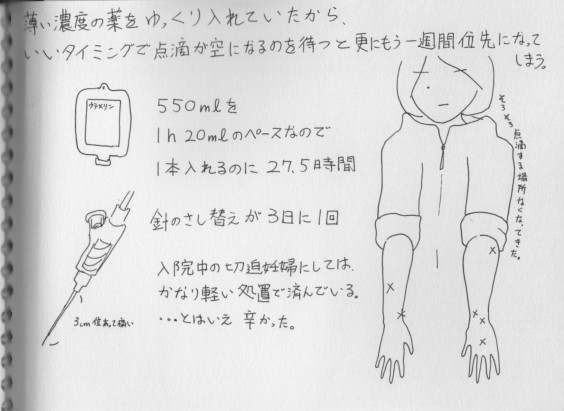 薄い濃度の薬をゆっくり入れていたから、
いいタイミングで点滴が空になるのを待つと更にもう一週間位先になって
しまう。
ウテメリン
550mlを
1h 20mlのペースなので
1本入れるのに 27.5時間
針のさし替えが3日に1回
入院中の切迫妊婦にしては、
かなり軽い処置で済んでいる。
…とはいえ 辛かった。
3cm位あって痛い
そろそろ点滴する場所なくなってきた。